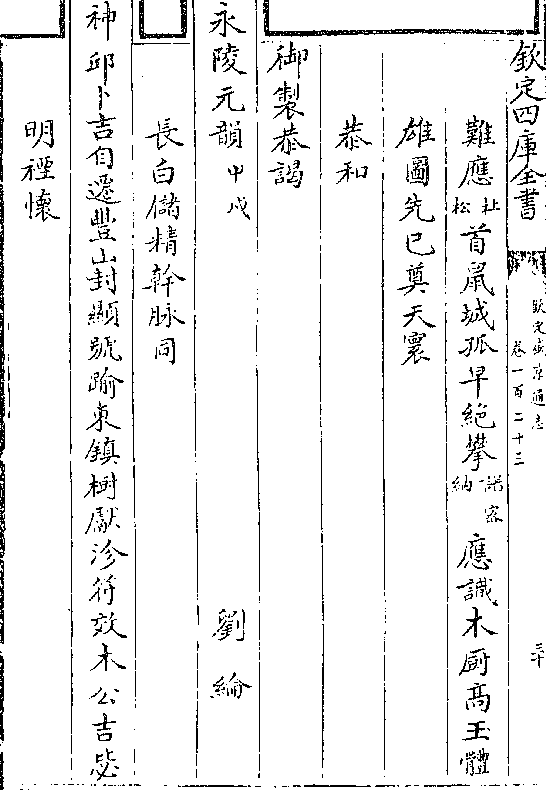 欽定四庫全書
欽定盛京通志
卷一百二十三
三十
難應杜松首鼠城孤早絶攀諾宻納應識木厨高玉體
雄圖先已奠天寰
恭和
御製恭謁
永陵元韻甲戌 劉綸
長白儲精幹脉同
神邱卜吉自遷豐山封顯號踰東鎮樹獻珍符效木公吉毖
明禋懷